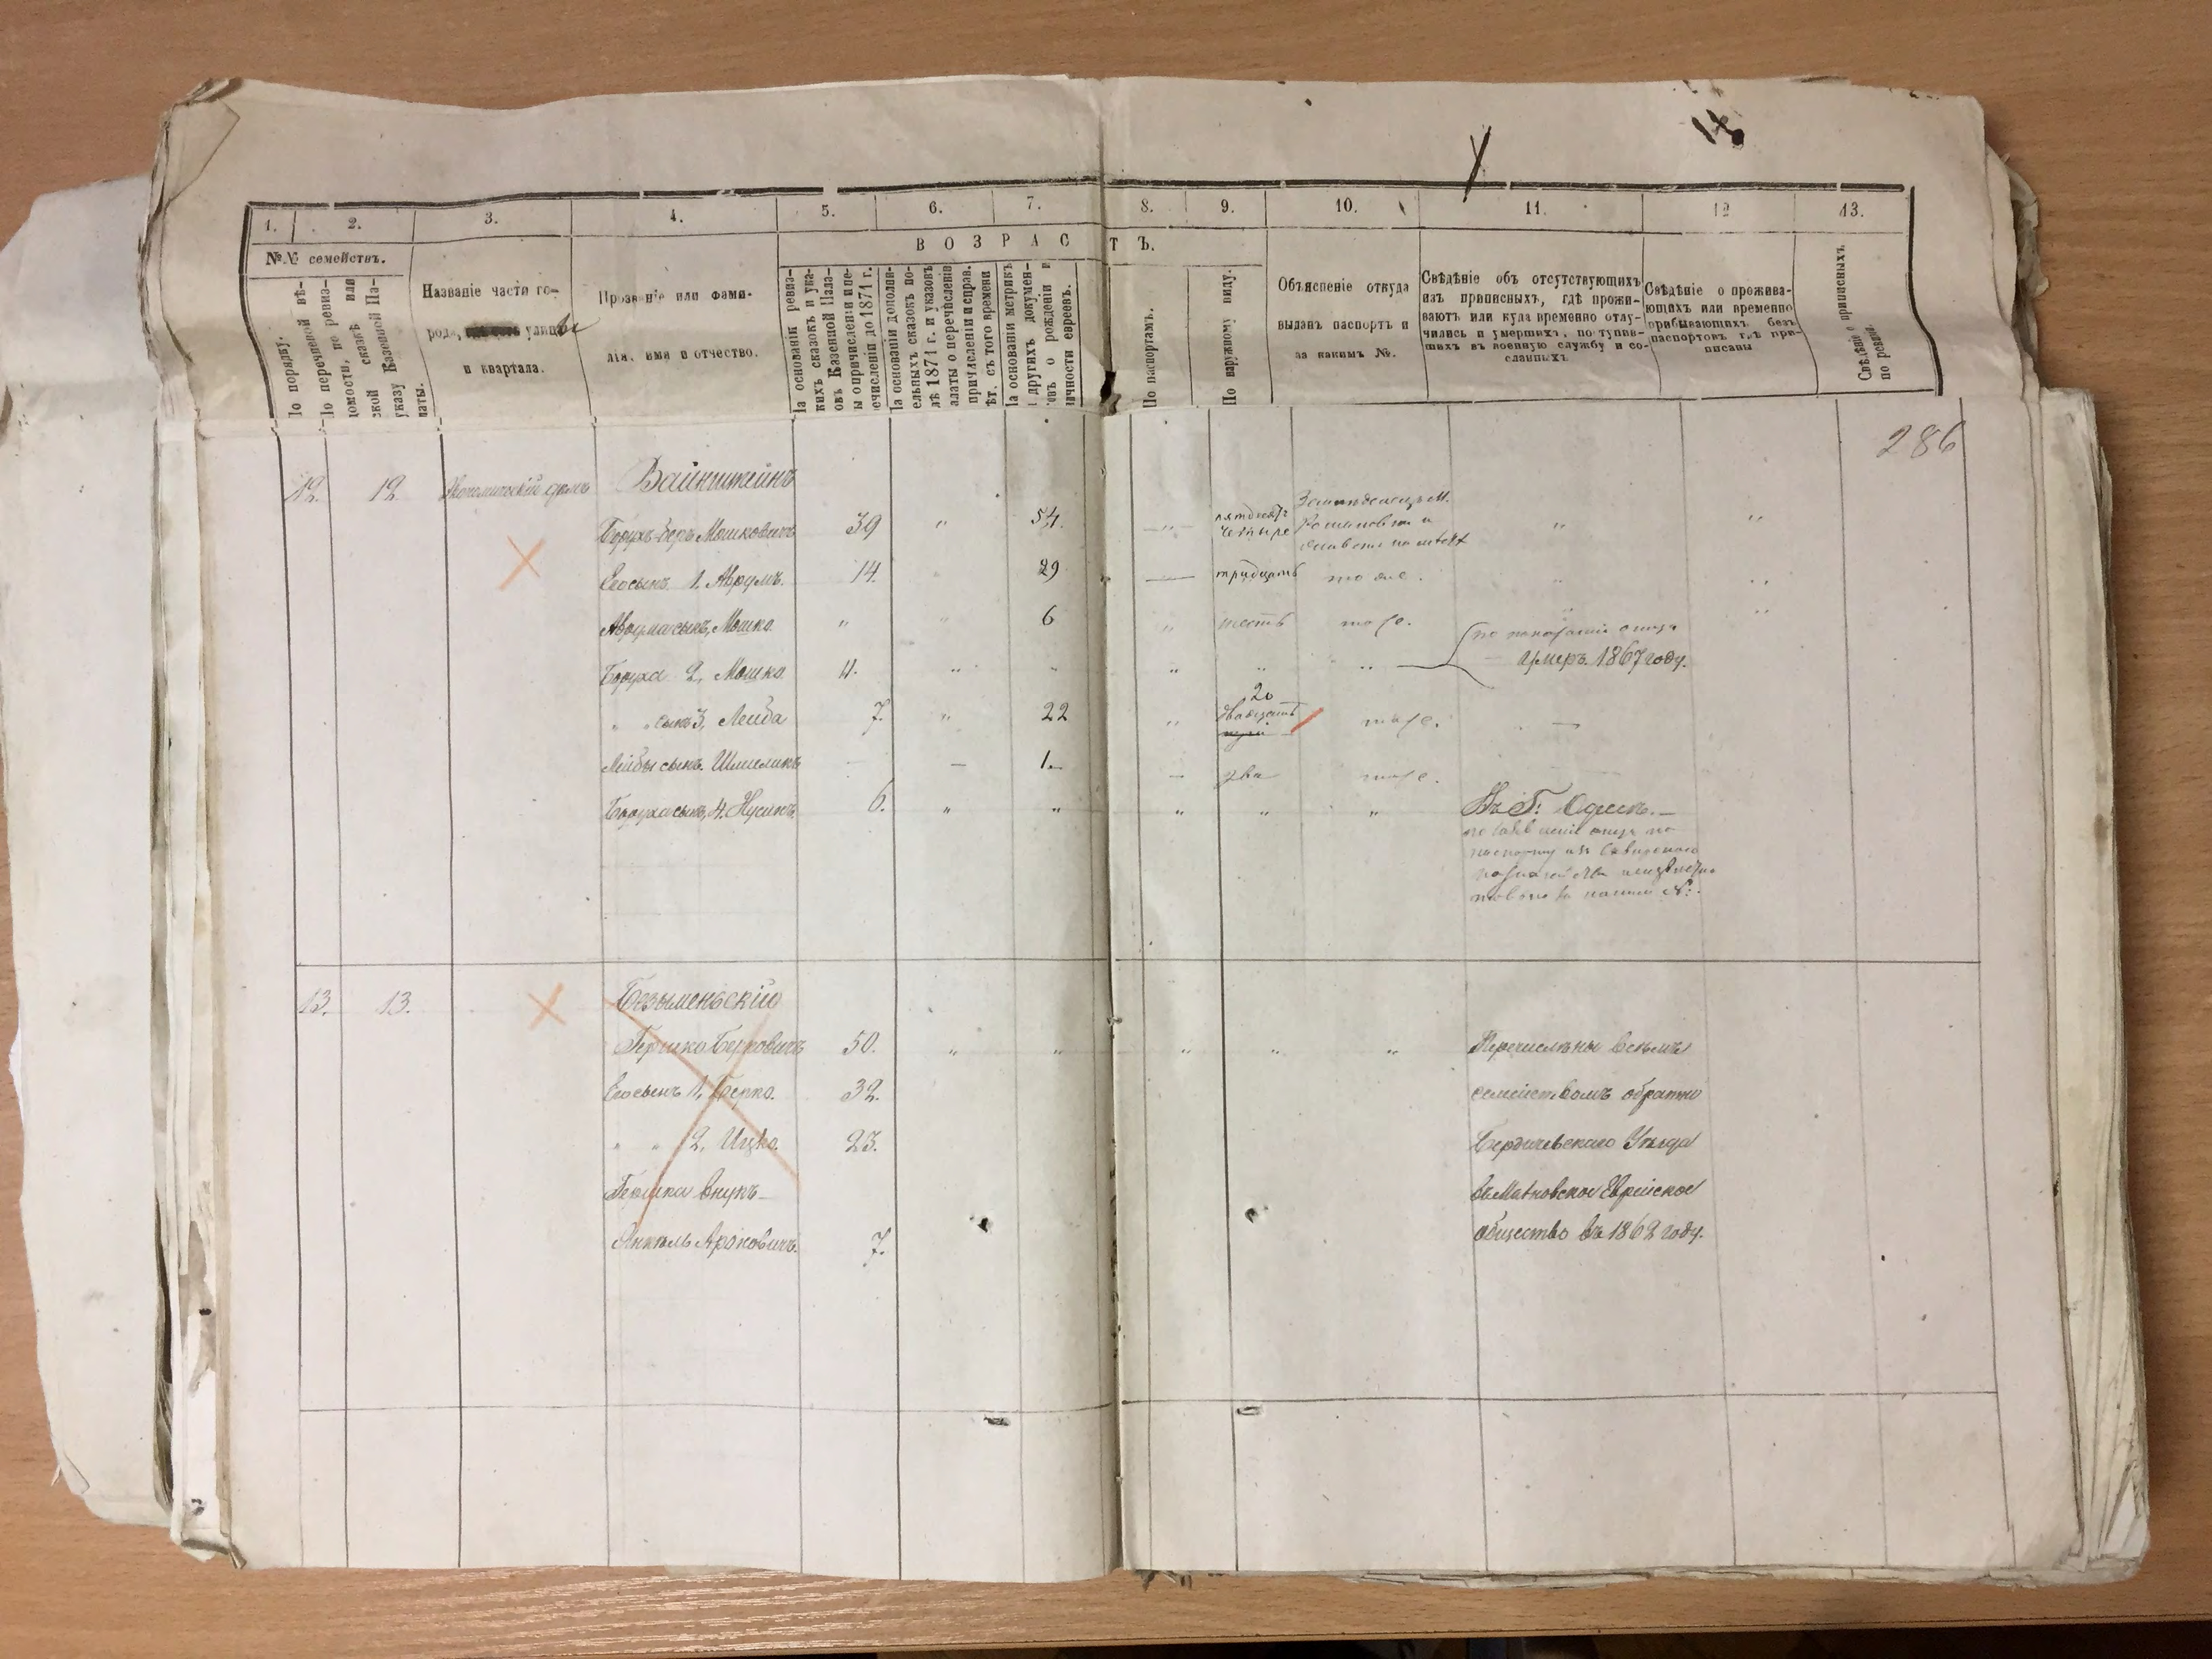 18
1. 2. 3. 4. 5. 6. 7. 8. 9. 10. 11. 12 13.
В О З Р А С Т Ъ.
№№ семействъ.
По порядку.
По перечневой вѣ-
домости, по ревиз-
ской сказкѣ или
указу Казенной Па-
латы.
Названіе части го-
рода, улицы
и квартала.
Прозваніе или фами-
лія, имя и отчество.
На основаніи ревиз-
скихъ сказокъ и ука-
зовъ Казенной Пала-
ты о причисленіи и пе-
речисленіи до 1871 г.
На основаніи дополни-
тельныхъ сказокъ по-
слѣ 1871 г. и указовъ
Палаты о перечисленіи
причисленіи и справ.
лѣт. съ того времени
На основаніи метрикъ
и другихъ докумен-
товъ о рожденіи и
личности евреевъ.
По паспортамъ.
По наружному виду.
Объясненіе откуда
выданъ паспортъ и
за какимъ №.
Свѣдѣніе объ отсутствующихъ
изъ приписныхъ, гдѣ прожи-
ваютъ или куда временно отлу-
чились и умершихъ, поступив-
шихъ въ военную службу и со-
сланныхъ
Свѣдѣніе о прожива-
ющихъ или временно
прибывающихъ безъ
паспортовъ гдѣ при-
писаны
Свѣдѣніе о приписныхъ
по ревизіи.
286
12. 12 домъ Вайнштейнъ
Борухъ-Беръ Мошковичъ 39 " 54. " пятдесятъ четыре " "
Его сынъ 1. Аврумъ. 14. 29 — тридцать то же.
Аврума сынъ, Мошко. " " 6 " шесть то же.
Боруха 2, Мошко. 4. " " " " " по показанію отца
умеръ 1867 году.
" " сынъ 3, Лейба 7. " 22 " 20 двадцать то же. —
Лейбы сынъ. Шмеликъ — — 1. — два то же.
Боруха сынъ, 4. Нусинъ. 6. " " " " " Въ Г. Одессѣ. —
13. 13. Безыменьскій
Гершко Берковичъ 50. " " " " " Перечислены всѣмъ
Его сынъ 1, Берко. 32. семействомъ обратно
" " 2, Ицко. 23. Бердичевскаго Уѣзда
Гершка внукъ — Еврейское
Янкель Ароновичъ. 7. общество въ 1862 году.